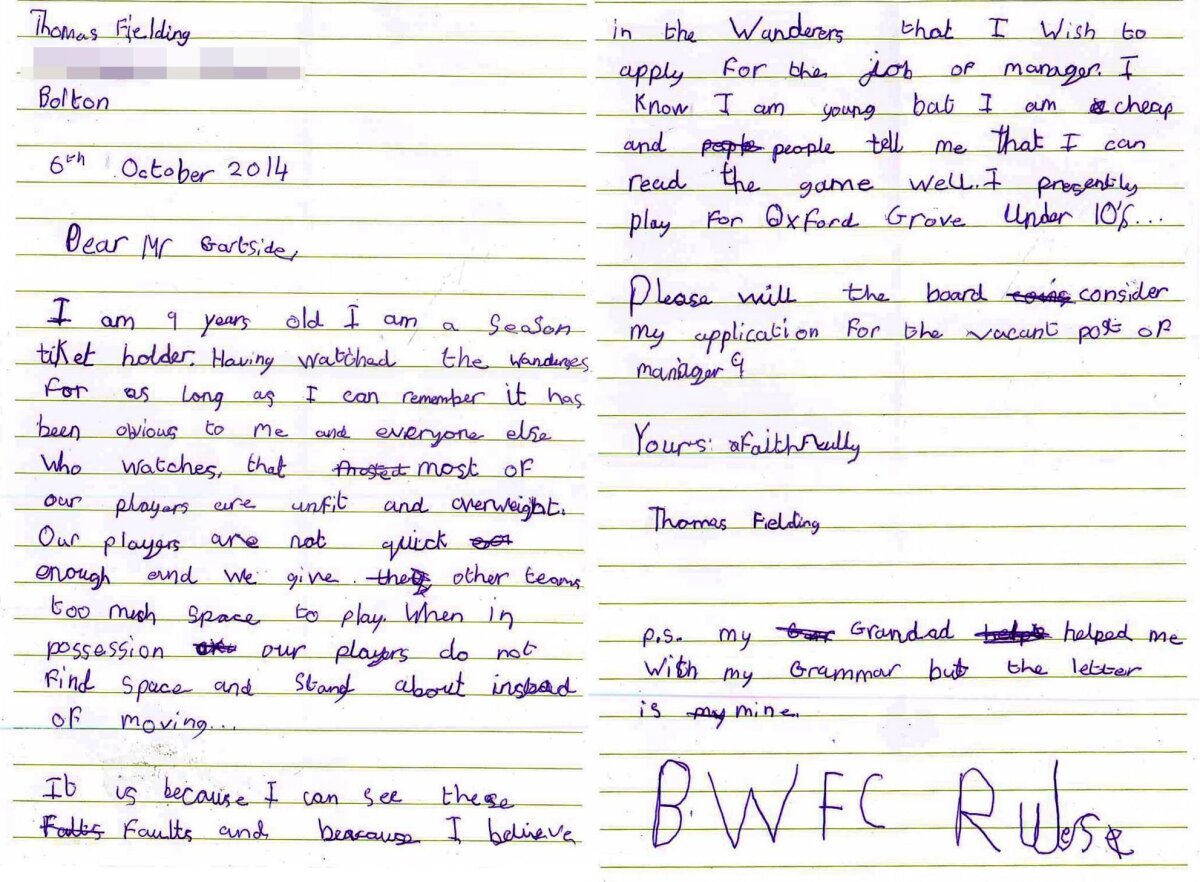 Thomas Fielding
Bolton
6th October 2014
Dear Mr Gartside,
I am 9 years old I am a season
tiket holder. Having watched the wanderes
for as long as I can remember it has
been obvious to me and everyone else
who watches, that most of
our players are unfit and overweight.
Our players are not quick
enough and we give other teams
too much space to play. When in
possession our players do not
find space and stand about instead
of moving...
It is because I can see these
Falts Faults and beacause I believe
in the Wanderers that I wish to
apply for the job of manager. I
know I am young but I am cheap
and people people tell me that I can
read the game well. I presently
play for Oxford Grove Under 10's...
Please will the board consider
my application for the vacant post of
manager?
Yours: faithfully
Thomas Fielding
p.s. my Grandad helped me
with my Grammar but the letter
is my mine.
B.WFC Rules